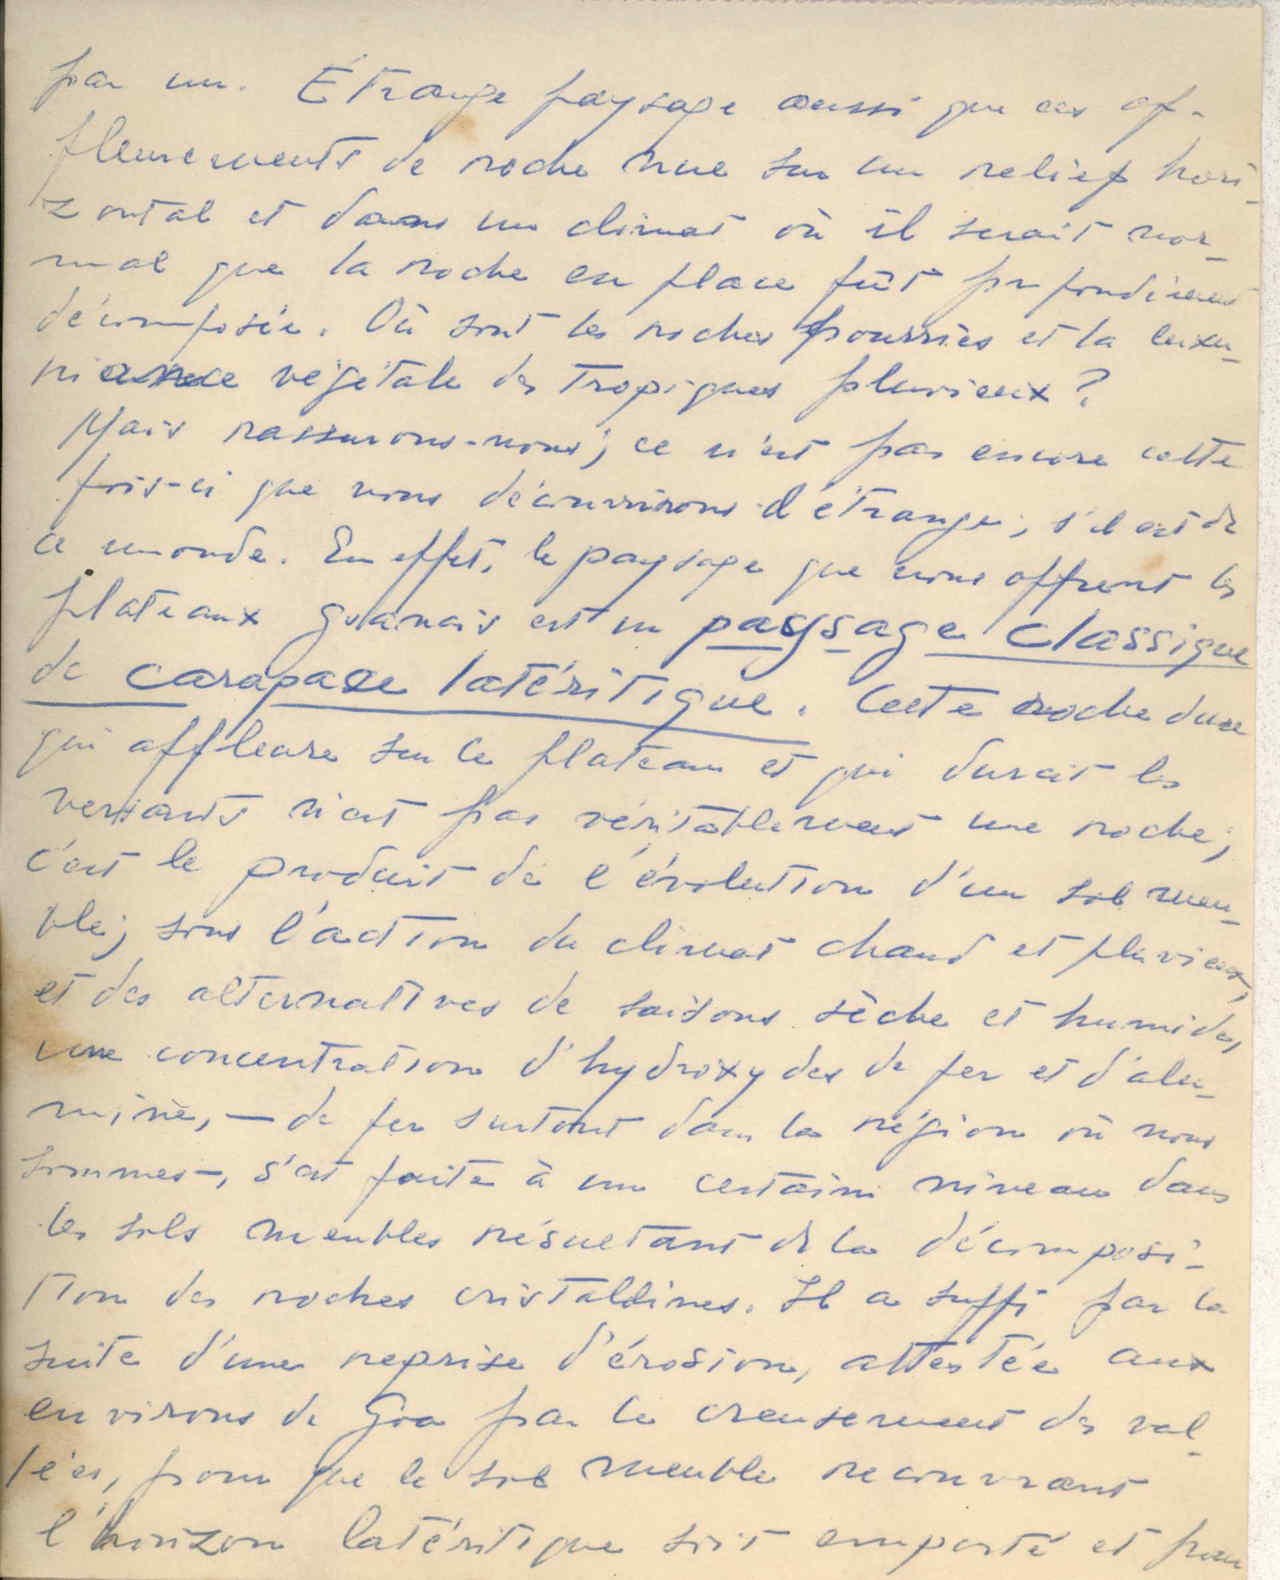 par un. Étrange paysage aussi que ces af-
fleurements de roche nue sur un relief hori-
zontal et dans un climat où il serait nor-
mal que la roche en place fût profondément
décomposée. Où sont les roches pourries et la luxu-
riance végétale des Tropiques pluvieux ?
Mais rassurons-nous ; ce n'est pas encore cette
fois-ci que nous découvrirons d'étrange, s'il est de
ce monde. En effet, le paysage que nous offrent les
plateaux goanais est un paysage classique
de carapace latéritique. Cette roche dure
qui affleure sur le plateau et qui durcit les
versants n'est pas véritablement une roche ;
c'est le produit de l'évolution d'un sol meu-
ble ; sous l'action du climat chaud et pluvieux,
et des alternatives de saisons sèche et humides,
une concentration d'hydroxydes de fer et d'alu-
mine, — de fer surtout dans la région où nous
sommes —, s'est faite à un certain niveau dans
les sols meubles résultant de la décomposi-
tion des roches cristallines. Il a suffi par la
suite d'une reprise d'érosion, attestée aux
environs de Goa par le creusement des val-
lées, pour que le sol meuble recouvrant
l'horizon latéritique soit emporté et pour